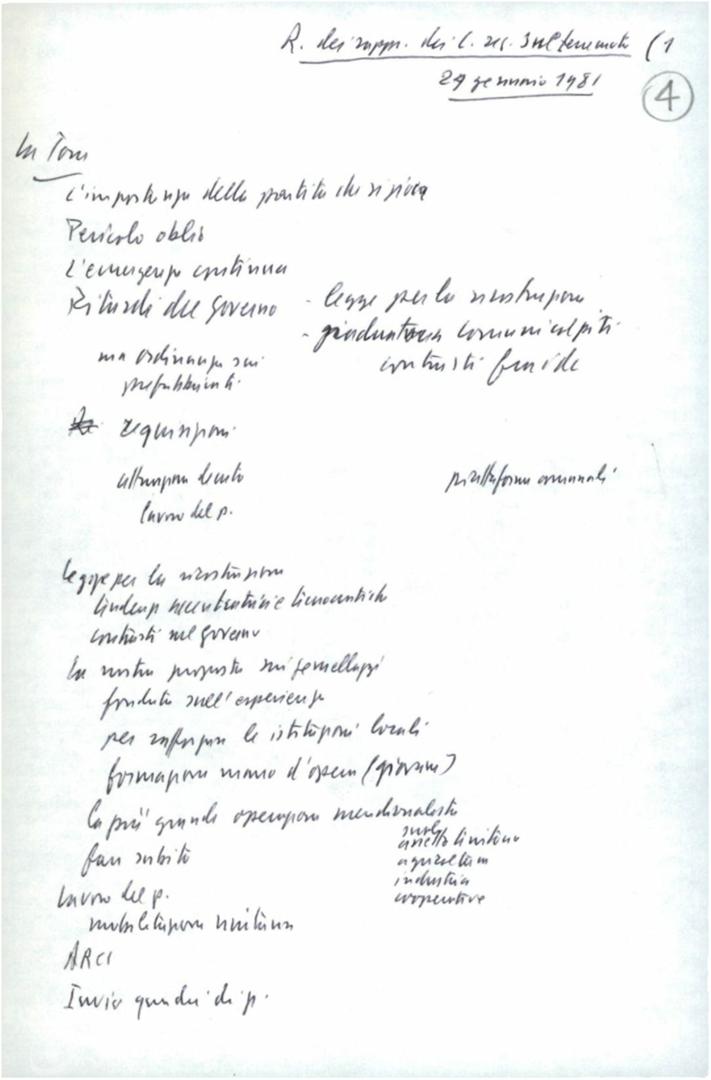 R. dei rapp. dei C. reg. sul terremoto (1
29 gennaio 1981
4
La Torre
L'importanza della partita che si gioca
Pericolo oblio
L'emergenza continua
Ritardi del governo - legge per la ricostruzione
- graduatoria comuni colpiti
contrasti fra i dc
ma ordinanza sui
prefabbricati
requisizioni
attuazione decreto
piattaforme comunali
lavoro del p.
legge per la ricostruzione
tendenze accentratrici e burocratiche
contrasti nel governo
La nostra proposta sui gemellaggi
fondata sull'esperienza
per rafforzare le istituzioni locali
formazione mano d'opera (giovani)
la più grande operazione meridionalista
fare subito
assetto territorio
agricoltura
industria
cooperative
Lavoro del p.
mobilitazione unitaria
ARCI
Invio quadri di p.